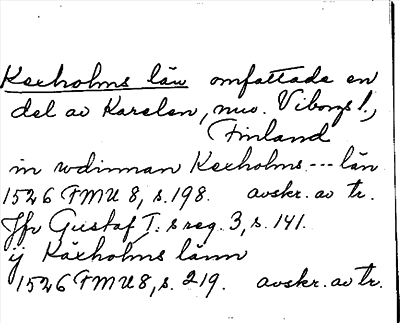 Kexholms län omfattade en
del av Karelen, nuv. Viborgs l.,
Finland
in wdinnan Kexholms --- län
1526 FMU 8, s. 198. avskr. av tr.
Jfr Gustaf I:s reg. 3, s. 141.
ij Käxholms länn
1526 FMU 8, s. 219. avskr. av tr.